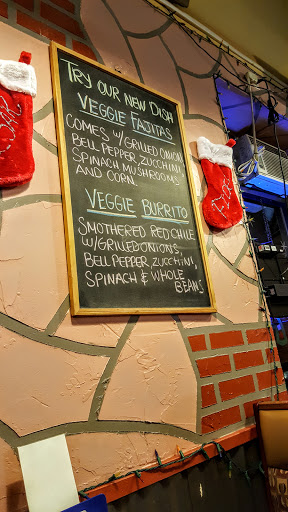 Try our new Dish
Veggie Fajitas
Comes w/ Grilled Onion,
Bell Pepper, Zucchini,
Spinach Mushrooms
and Corn.
Veggie Burrito
Smothered Red Chile
w/ Grilled Onions
Bell Pepper, Zucchini,
Spinach & Whole
Beans